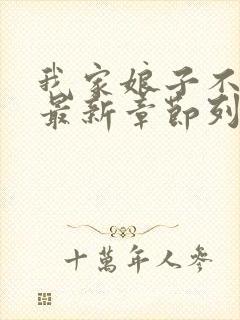 我家娘子不
最新章節列
十萬年人參